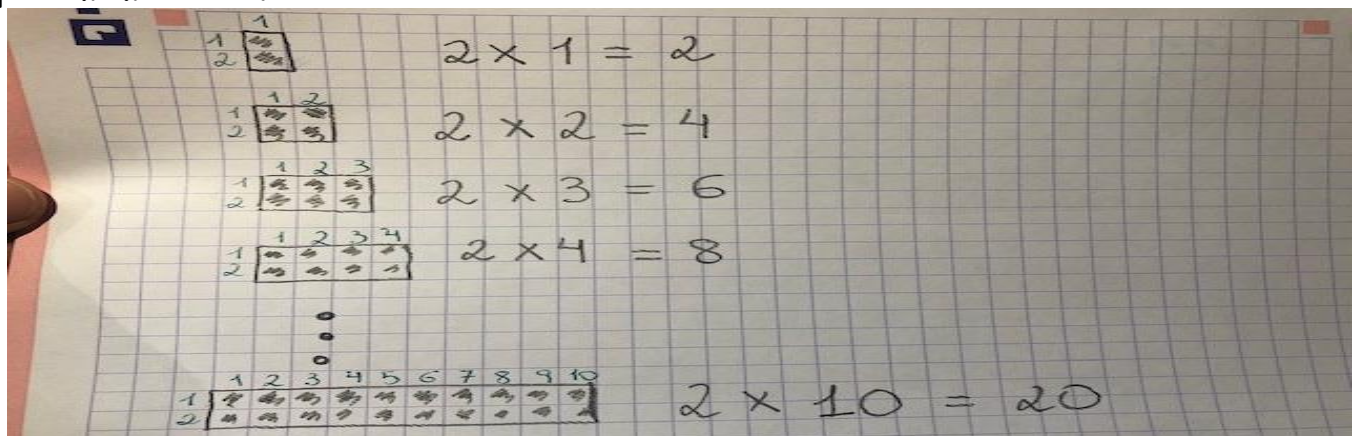 1
1 2 × 1 = 2
2
1 2
1
2 2 × 2 = 4
1 2 3
1
2 2 × 3 = 6
1 2 3 4
1 2 × 4 = 8
2
1 2 3 4 5 6 7 8 9 10
1 2 × 10 = 20
2